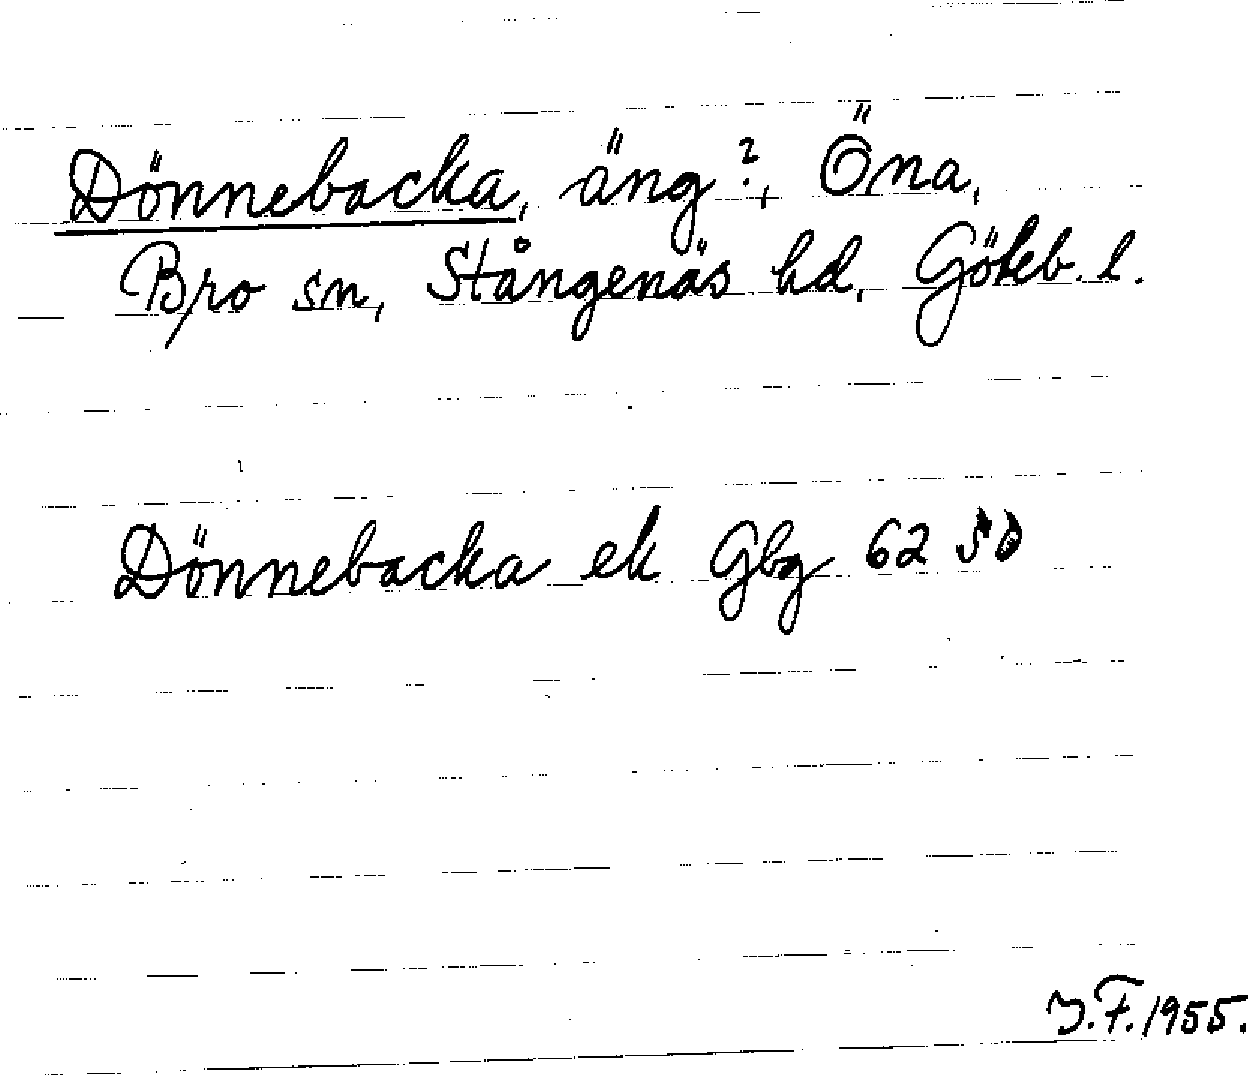 Dönnebacka, äng?, Öna,
Bro sn, Stångenäs hd, Göteb. l.
Dönnebacka ek Gbg 62 50
J.F. 1955.